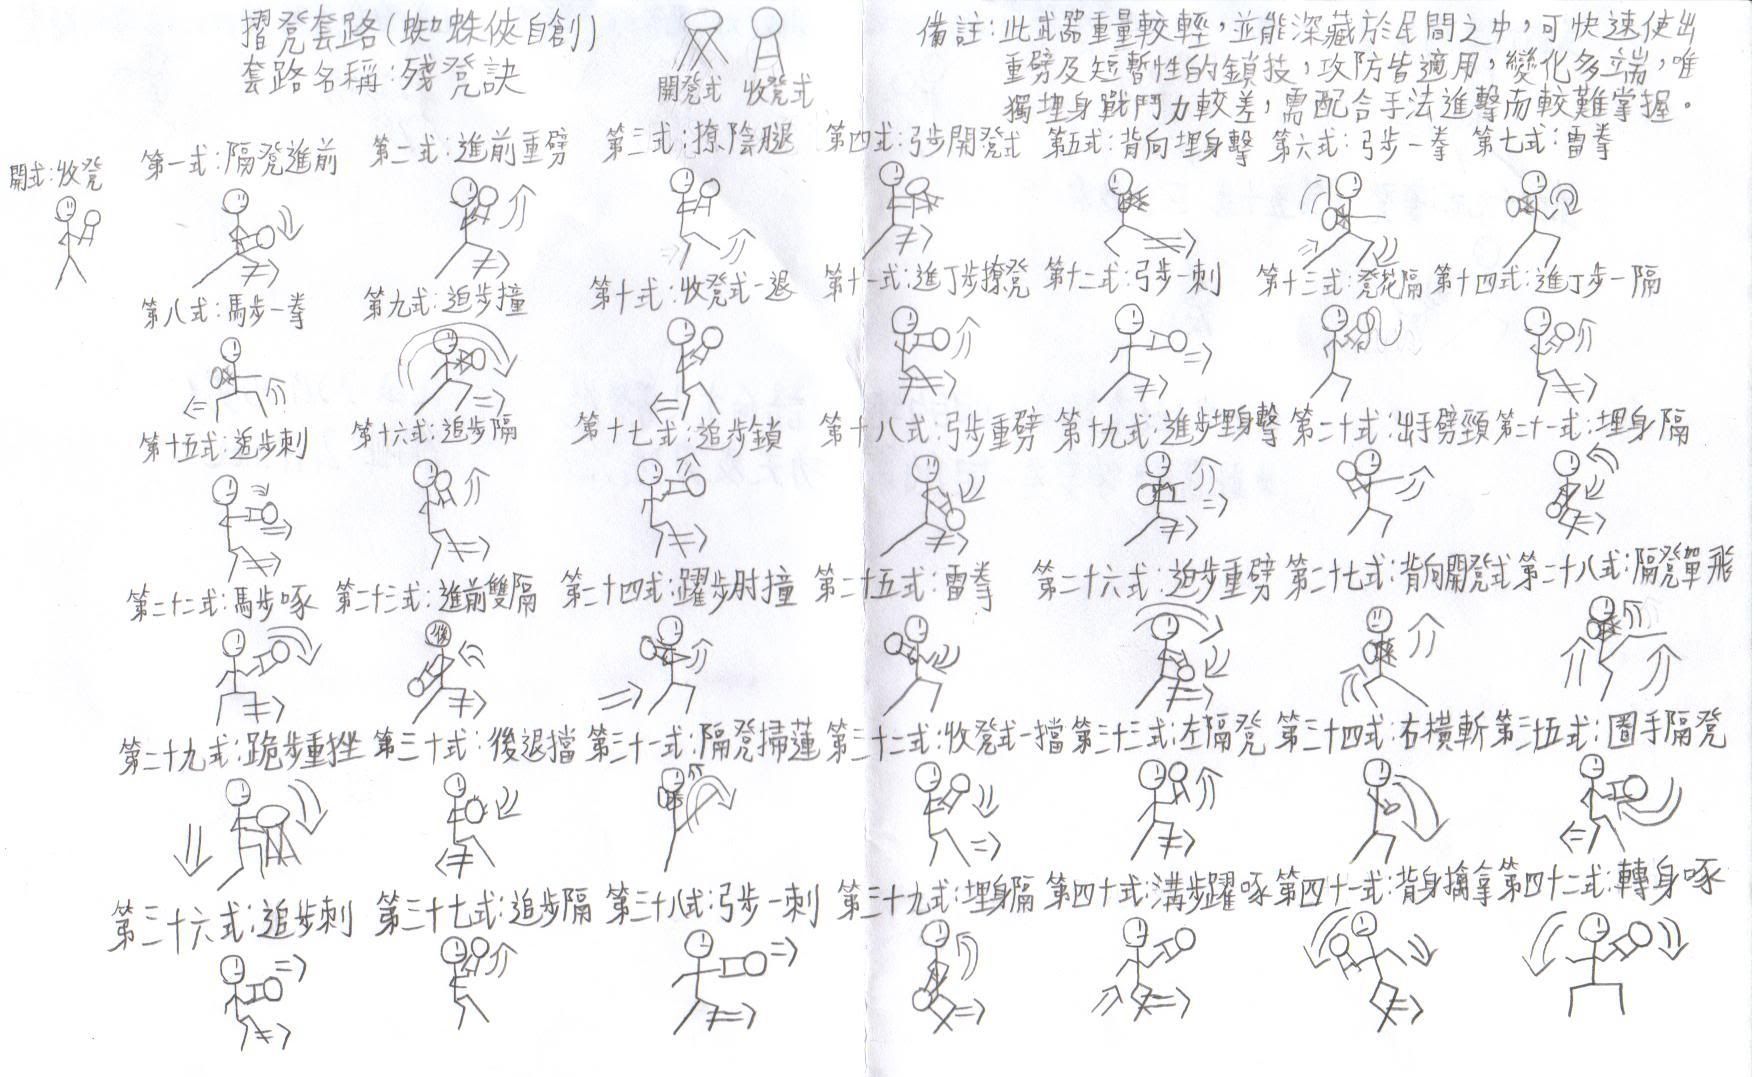 摺凳套路(蜘蛛俠自創)
套路名稱:殘凳訣
開凳式 收凳式
備註:此武器重量較輕,並能深藏於民間之中,可快速使出
重劈及短暫性的鎖技,攻防皆適用,變化多端,唯
獨埋身戰鬥力較差,需配合手法進擊而較難掌握。
開式:收凳
第一式:隔凳進前
第二式:進前重劈
第三式:撩陰腿
第四式:弓步開凳式
第五式:背向埋身擊
第六式:弓步一拳
第七式:雷拳
第八式:馬步一拳
第九式:迫步撞
第十式:收凳式一退
第十一式:進丁步撩凳
第十二式:弓步一刺
第十三式:凳花隔
第十四式:進丁步一隔
第十五式:追步刺
第十六式:追步隔
第十七式:追步鎖
第十八式:弓步重劈
第十九式:進步埋身擊
第二十式:出手劈頸
第二十一式:埋身隔
第二十二式:馬步啄
第二十三式:進前雙隔
後
第二十四式:躍步肘撞
第二十五式:雷拳
第二十六式:迫步重劈
第二十七式:背向開凳式
第二十八式:隔凳單飛
第二十九式:跪步重挫
第三十式:後退擋
第三十一式:隔凳掃蓮
第三十二式:收凳式一擋
第三十三式:左隔凳
第三十四式:右橫斬
第三十五式:圈手隔凳
第三十六式:追步刺
第三十七式:追步隔
第三十八式:弓步一刺
第三十九式:埋身隔
第四十式:溝步躍啄
第四十一式:背身擒拿
第四十二式:轉身啄